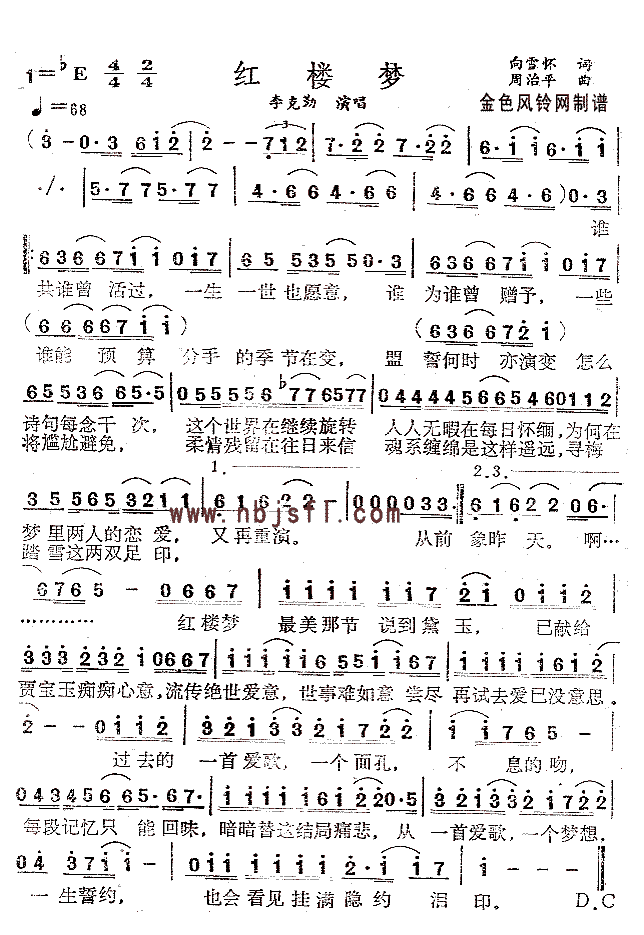 1=♭E 4/4 2/4 红 楼 梦 向雪怀 词
周治平 曲
♩=68 李克勤 演唱 金色风铃网制谱
(3-0·3 612|2--712|7·227·27|6·1161·11|
·/·|5·775·77|4·664·66|4·664·6)0·3|
谁
636671 1017|65 53550·3|636671 1017|
共谁曾 活过, 一生一世也愿意, 谁 为谁曾 赠予, 一些
(6666711) (6366721)
谁能 预算 分手 的季节在变, 盟 誓何时 亦演变 怎么
6553366565·5|0555556♭776577|0444445665460112|
诗句每念千次, 这个世界在继续旋转 人人无暇在每日怀缅,为何在
将尴尬避免, 柔情残留在往日来信 魂系缠绵是这样遥远,寻梅
1. 2.3.
35 556532211|61622--|0000033|616220 06·|
www.nbjsfl.com
梦里两人的恋爱,又再重演。 从前 象昨 天。啊…
踏雪这两双足印,
6765-0667|1111 1117 21 17|
………… 红楼梦 最美那节 说到黛 玉, 已献给
333232120667|1111165511 67|1111161 12|
贾宝玉痴痴心意,流传绝世爱意,世事难如意 尝尽 再试去爱已没意思。
2-0112|32132 21722|01765|
过去的 一首爱歌,一个面孔, 不 息的吻,
043455665·67·|1111161220·5|32132 21722|
每段记忆只 能回味,暗暗替这结局痛悲,从 一首爱歌,一个梦想,
04 3711--|01112·176|1---|1---‖
一生誓约, 也会看见挂满隐约 泪 印。 D.C